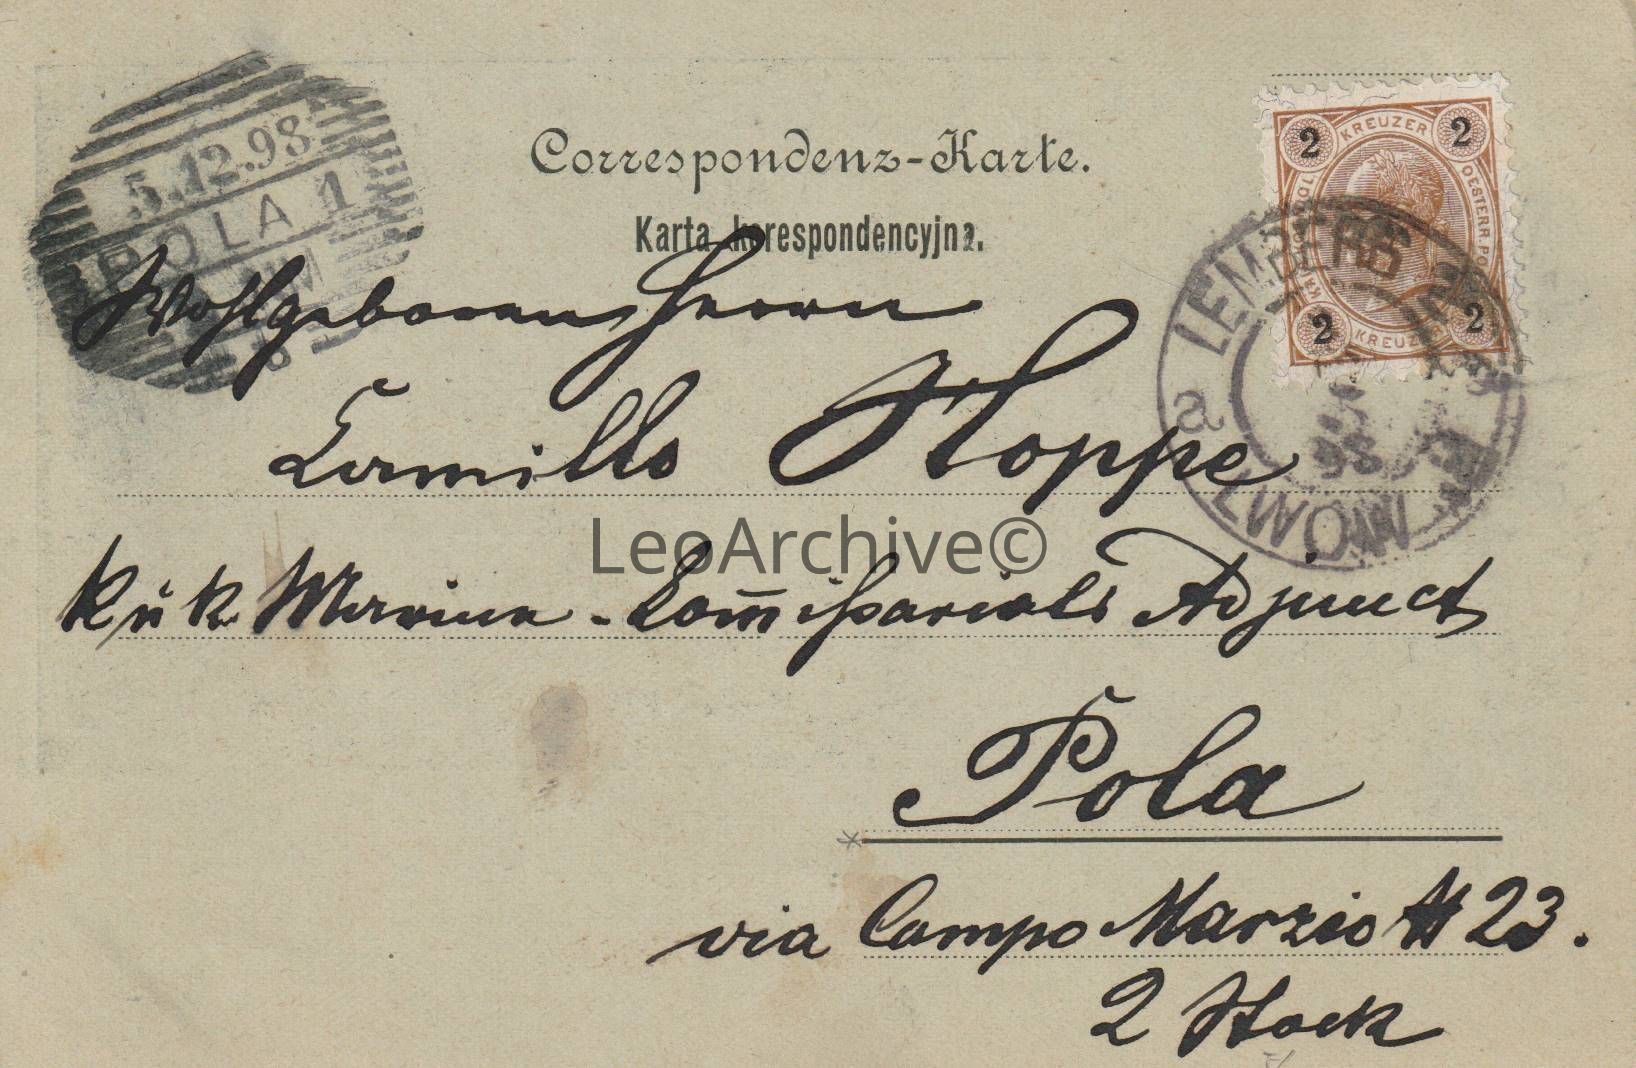 Correspondenz-Karte.
Karta korespondencyjna.
5.12.98
POLA 1
2 KREUZER 2
2 KREUZER 2
LEMBERG
LWÓW
98
Wohlgeboren Herrn
Camillo Hoppe
K u K Marine-Com̅issariats Adjunct
Pola
via Campo Marzio № 23.
2 Stock
LeoArchive©